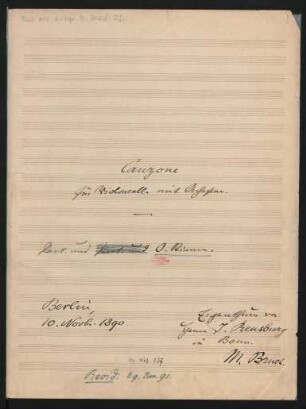 Canzone
für Violoncell mit Orchester.
Part und O. Stimmen.
Berlin,
10. Novb. 1890.
Eigenthum von
Herrn J. Rensburg
in Bonn.
M. Bruch.
Revid. 29. Jan. 91.